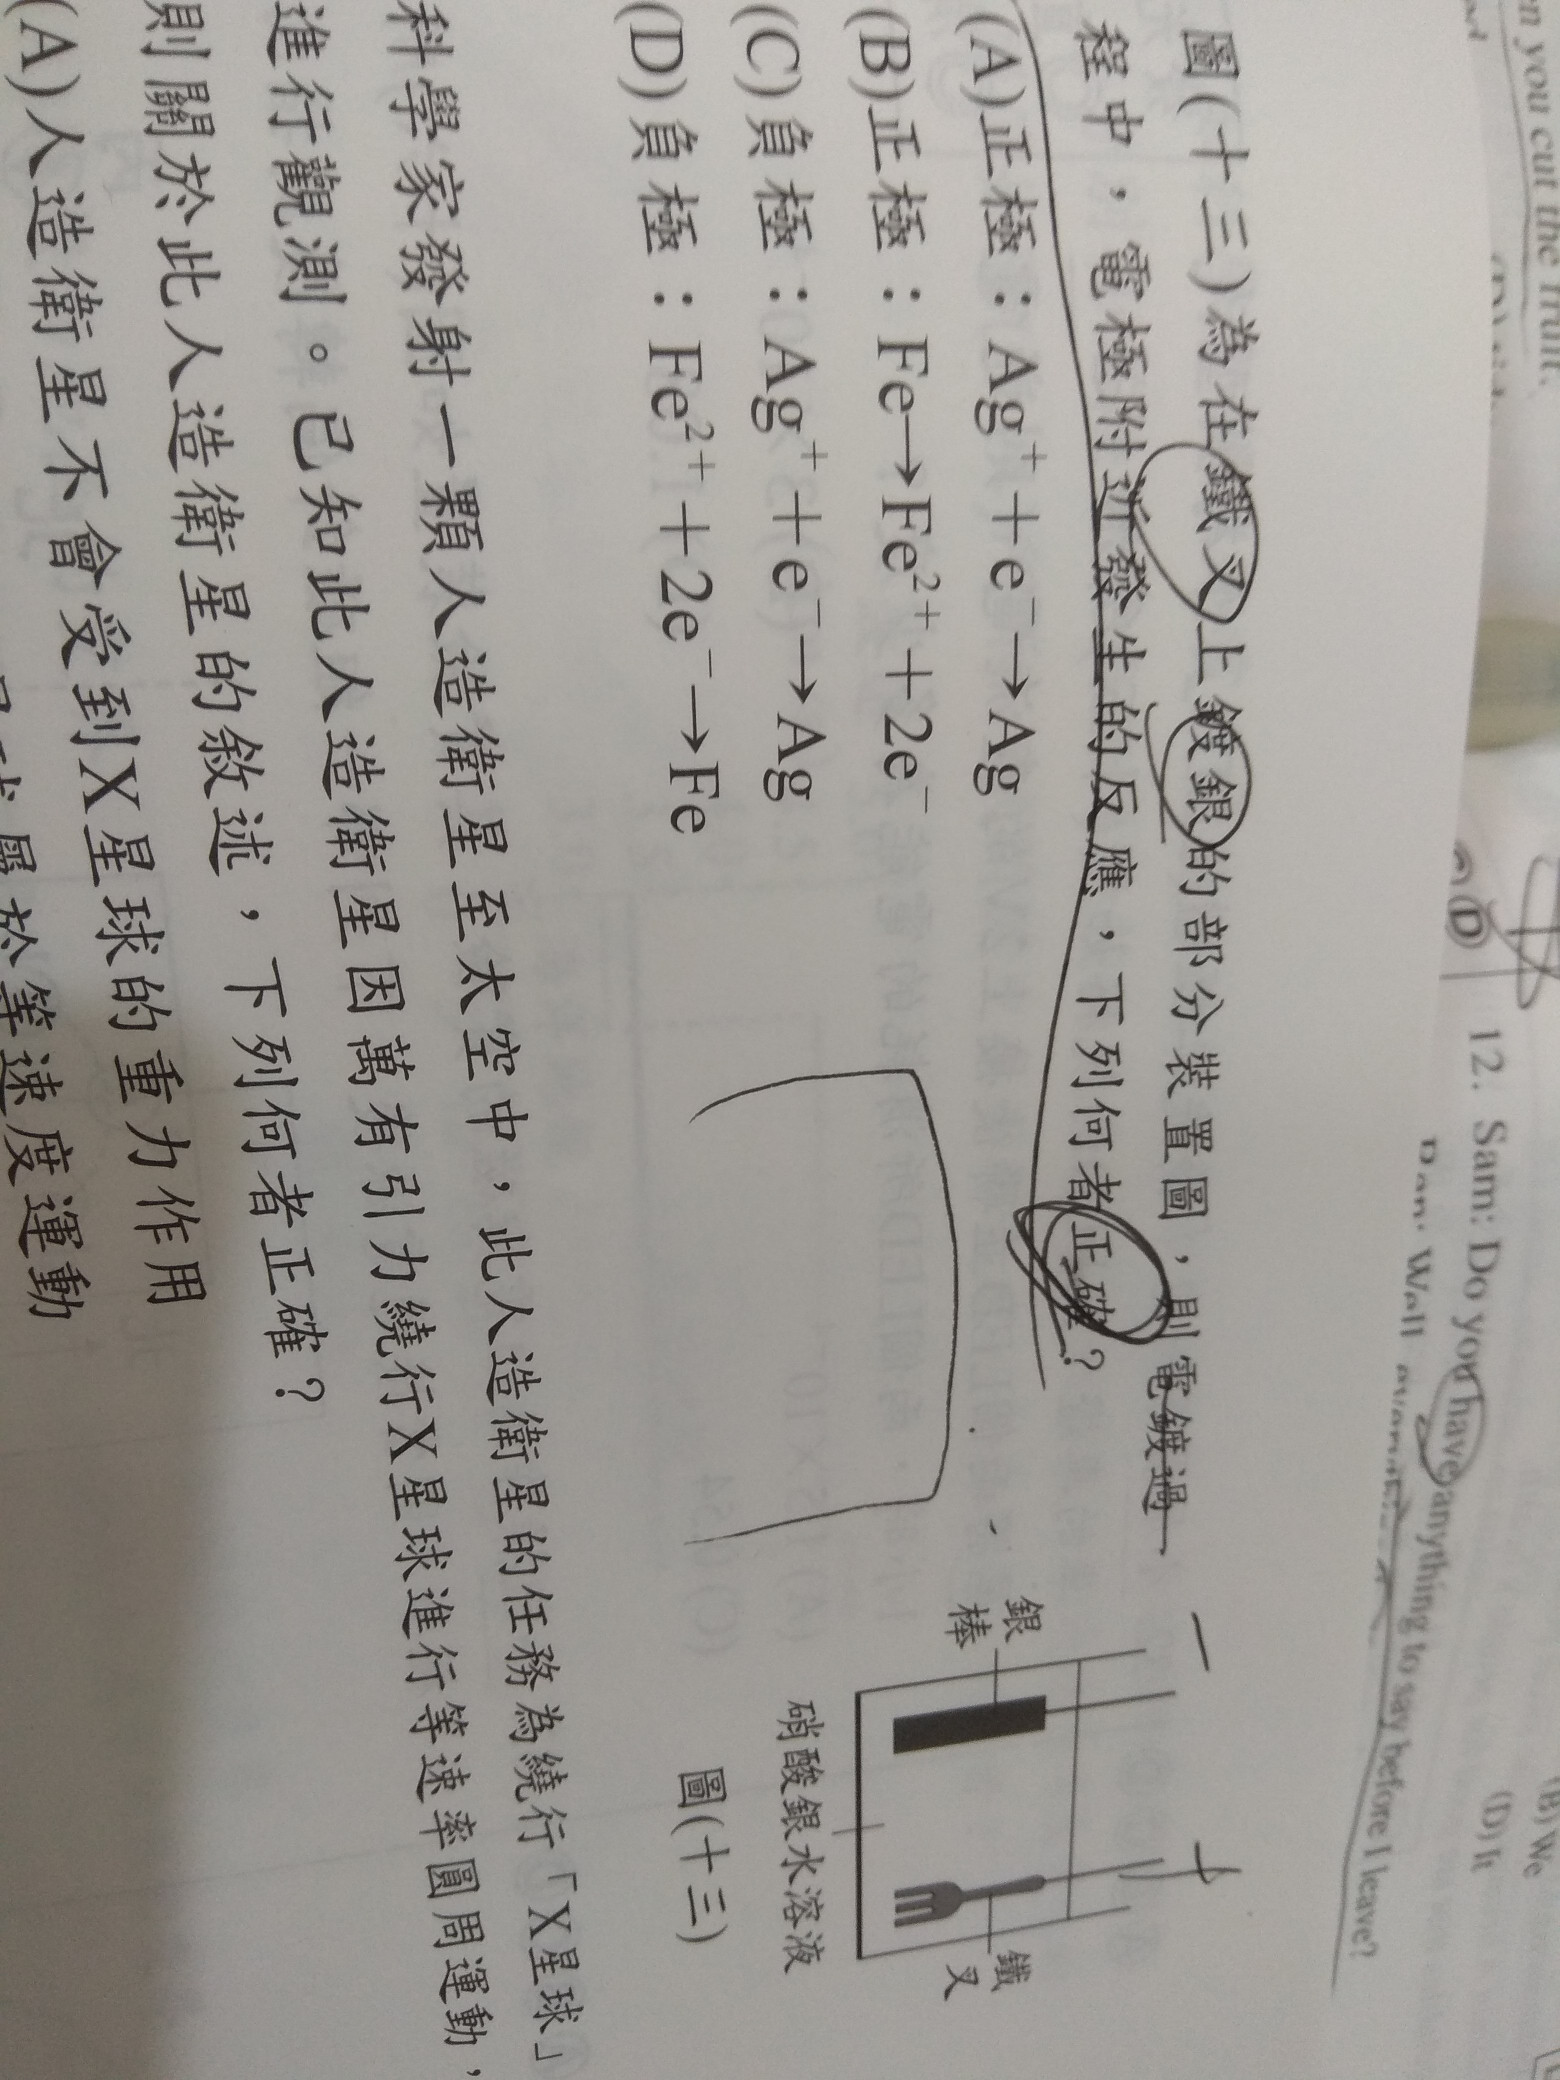 en you cut the fruit.
(D)
12. Sam: Do you have anything to say before I leave?
Dan: Well
(B) We
(D) It
圖(十三)為在鐵叉上鍍銀的部分裝置圖，則電鍍過
程中，電極附近發生的反應，下列何者正確？
(A)正極：Ag⁺＋e⁻→Ag
(B)正極：Fe→Fe²⁺＋2e⁻
(C)負極：Ag⁺＋e⁻→Ag
(D)負極：Fe²⁺＋2e⁻→Fe
－
＋
銀棒
鐵叉
硝酸銀水溶液
圖(十三)
科學家發射一顆人造衛星至太空中，此人造衛星的任務為繞行「X星球」
進行觀測。已知此人造衛星因萬有引力繞行X星球進行等速率圓周運動，
則關於此人造衛星的敘述，下列何者正確？
(A)人造衛星不會受到X星球的重力作用
屬於等速度運動